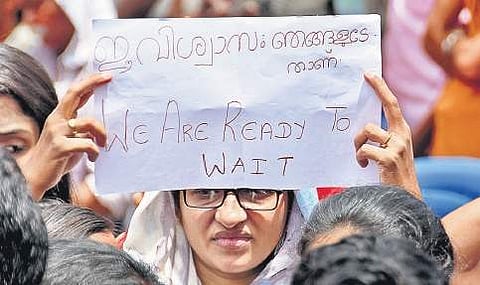 ഈ വിശ്വാസം ഞങ്ങളുടേ
താണ്
WE ARE READY TO
WAIT